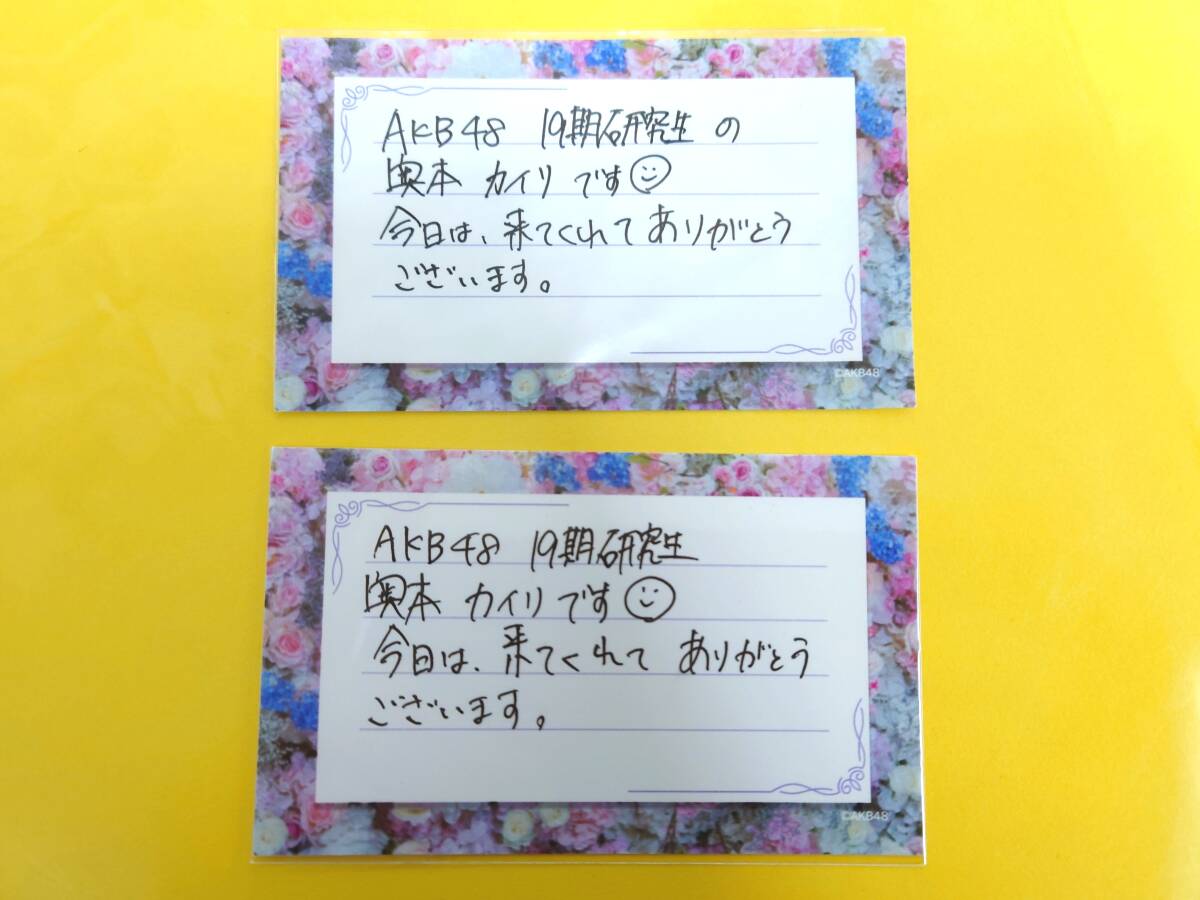 AKB48 19期研究生の
奥本 カイリです
今日は、来てくれてありがとう
ございます。
©AKB48
AKB48 19期研究生
奥本 カイリです
今日は、来てくれて ありがとう
ございます。
©AKB48